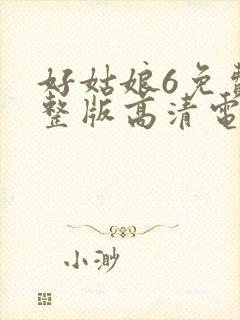 好姑娘6免費
整版高清電
小渺